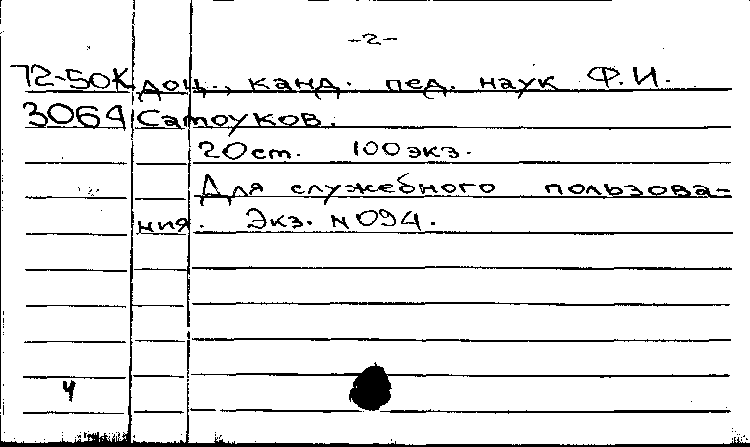 -2-
72-50К доц., канд. пед. наук Ф.И.
3064 Самоуков.
20см. 100экз.
Для служебного пользова=
ния. Экз. №094.
ч